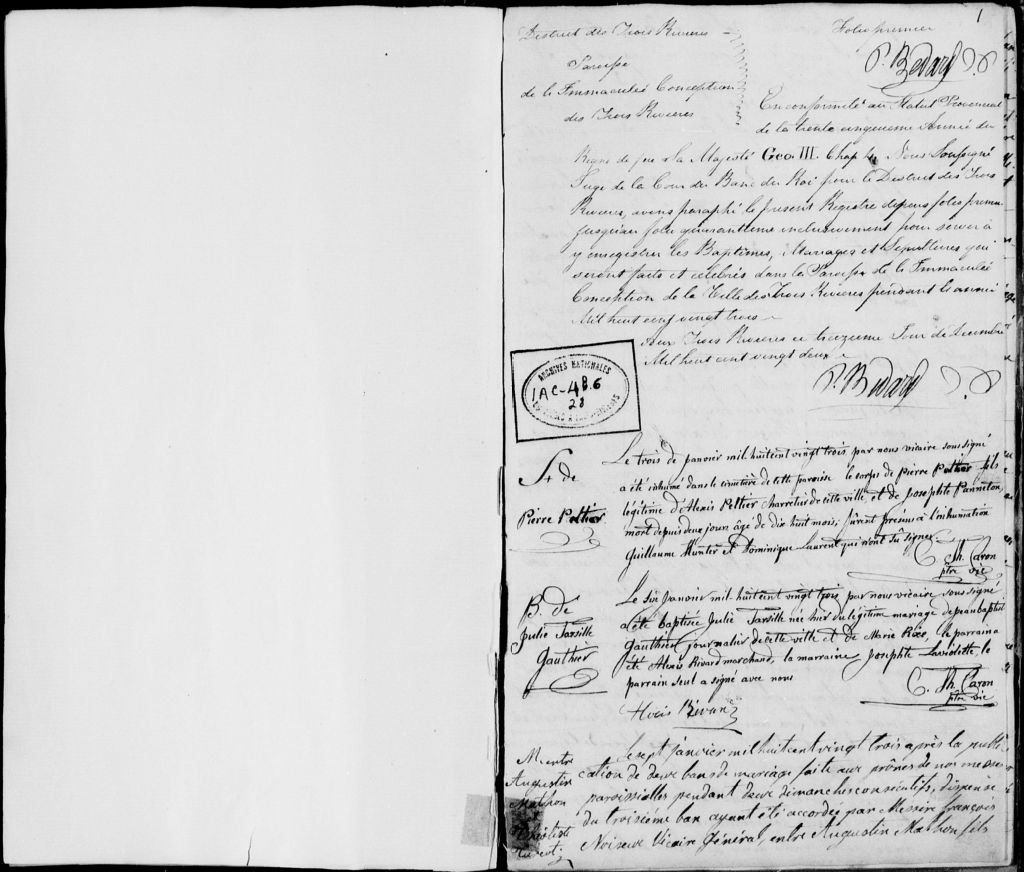 1
District des Trois Rivieres
Folio premier
P. Bedard J.P.
Paroisse
de le Immaculeé Conception
des Trois Rivieres
En conformité au Statut Provincial
de la trente cinquieme Année du
Regne de feu sa Majesté Geo. III. Chap 4 Nous Soussigné
Juge de la Cour du Banc du Roi pour le District des Trois
Rivieres, avons paraphé le present Registre depuis folio premier
jusqu'au folio quarantieme inclusivement pour servir à
y enregistrer les Baptêmes, Mariages et Sepultures qui
seront faits et célébrés dans la Paroisse de le Immaculeé
Conception de la Ville des Trois Rivieres pendant l'année
Mil huit cent vingt trois
Aux Trois Rivieres ce treizieme Jour de Decembre
Mil huit cent vingt deux
P. Bedard J.P.
ARCHIVES NATIONALES
1AC-4B.6
28
S. de
Pierre Peltier
Le trois de janvier mil huit cent vingt trois par nous vicaire soussigné
a été inhumé dans le cimetière de cette paroisse le corps de Pierre Peltier fils
légitime d'Alexis Peltier charretier de cette ville et de Josephte Panneton,
mort depuis deux jours âgé de dix huit mois; fûrent présens à l'inhumation
Guillaume Hunter et Dominique Laurent qui n'ont sû signer
C. Th. Caron
ptre vic
B. de
Julie Tarsille
Gauthier
Le six janvier mil huit cent vingt trois par nous vicaire soussigné
a été baptisée Julie Tarsille née hier du légitime mariage de jean baptiste
Gauthier journalier de cette ville et de Marie Rixe, le parrain a
été Alexis Rivard marchand, la marraine Josephte Laviolette, le
parrain seul a signé avec nous
C. Th. Caron
ptre vic
M. entre
Augustin
Mathon
Le sept janvier mil huit cent vingt trois après la publi
cation de deux bans de mariage faite aux prônes de nos messes
paroissialles pendant deux dimanches consecutifs, dispense
du troisième ban ayant été accordée par Messire françois
Noiseux Vicaire Général, entre Augustin Mathon fils